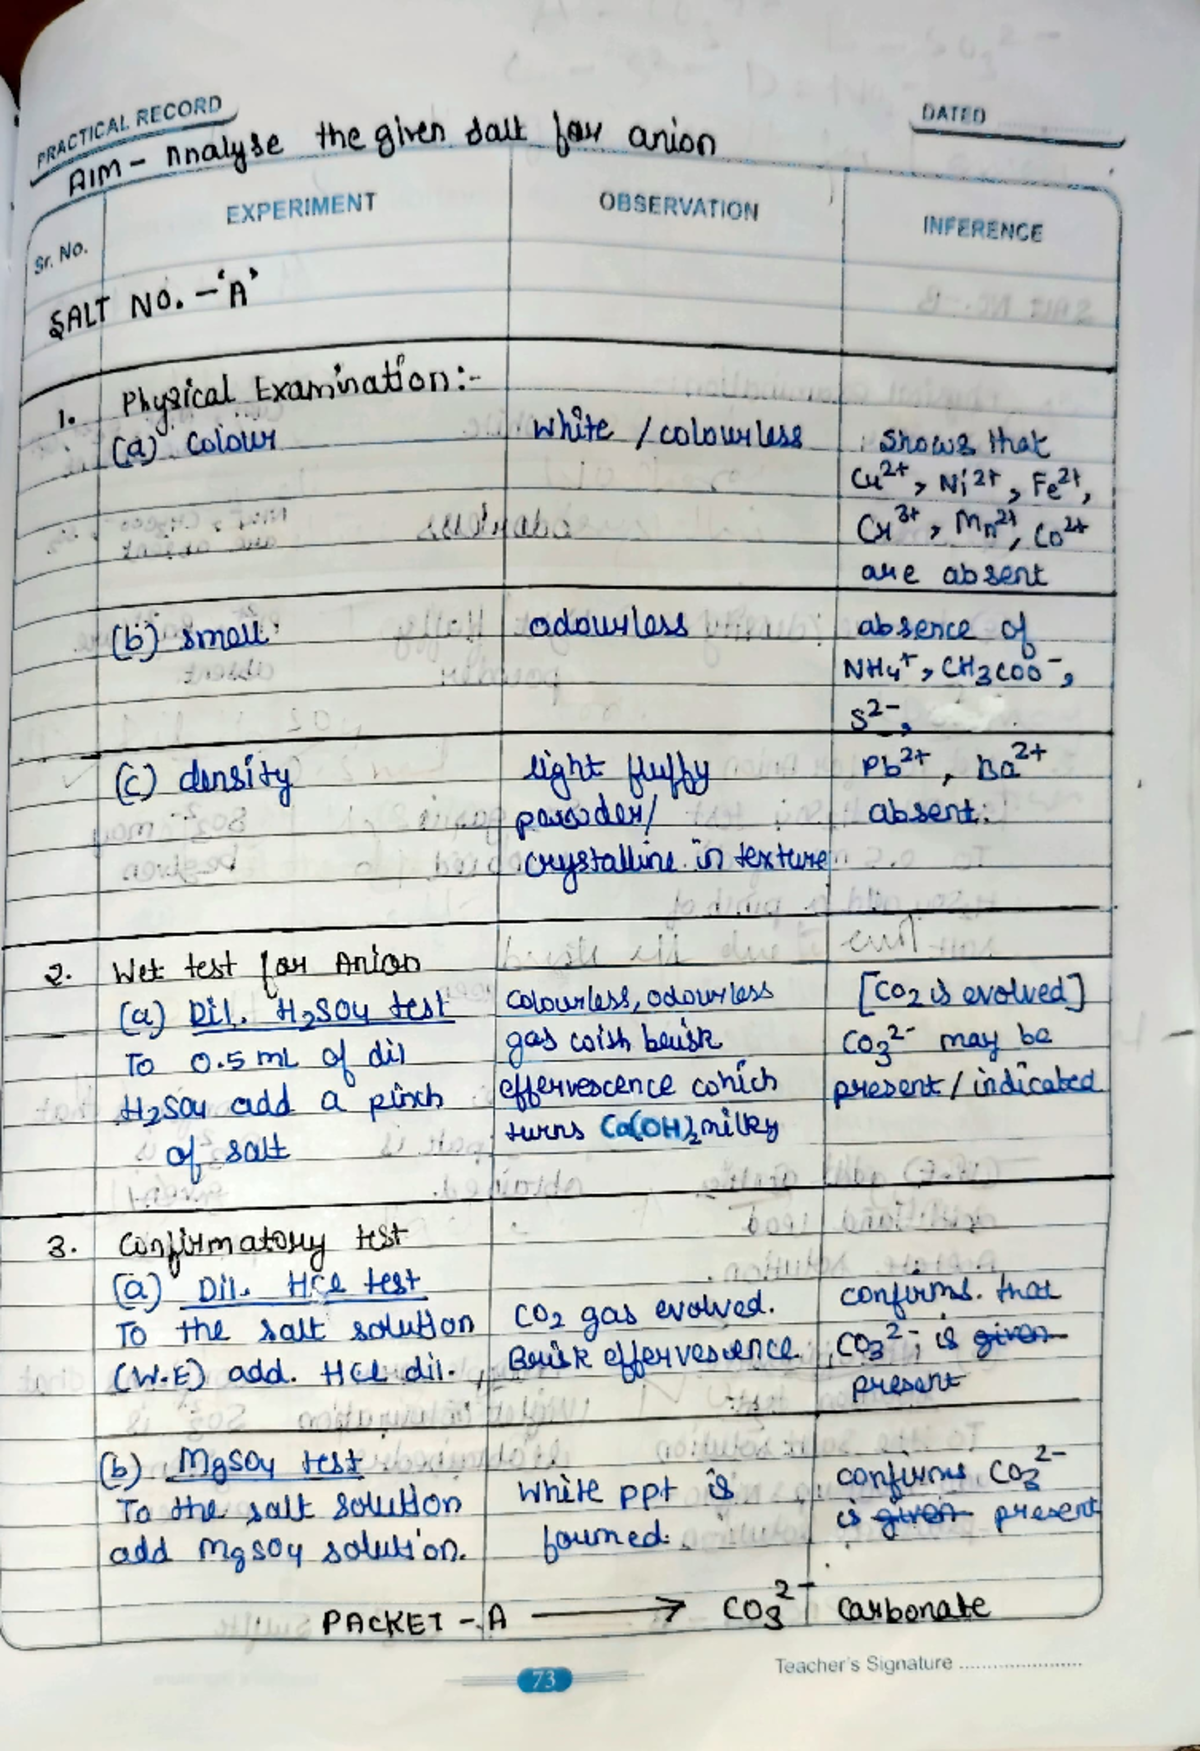 PRACTICAL RECORD
DATED
AIM - Analyse the given salt for anion
Sr. No.
EXPERIMENT
OBSERVATION
INFERENCE
SALT NO. - 'A'
1. Physical Examination:-
(a) Colour
White / colourless
shows that
Cu2+, Ni2+, Fe2+,
Cr3+, Mn2+, Co2+
are absent
(b) smell:
odourless
absence of
NH4+, CH3COO-,
S2-,
(c) density
light fluffy
powder/
crystalline in texture
Pb2+, Ba2+
absent.
2. Wet test for Anion
(a) Dil. H2SO4 test
To 0.5 mL of dil
H2SO4 add a pinch
of salt
colourless, odourless
gas with brisk
effervescence which
turns Ca(OH)2 milky
[CO2 is evolved]
CO3 2- may be
present / indicated
3. Confirmatory test
(a) Dil. HCl test
To the salt solution
(W.E) add. HCl dil.,
CO2 gas evolved.
Brisk effervescence.
confirms. that
CO3 2- is given
present
(b) MgSO4 test
To the salt solution
add MgSO4 solution.
White ppt is
formed.
confirms CO3 2-
is given present
PACKET - A → CO3 2- carbonate
Teacher's Signature
73